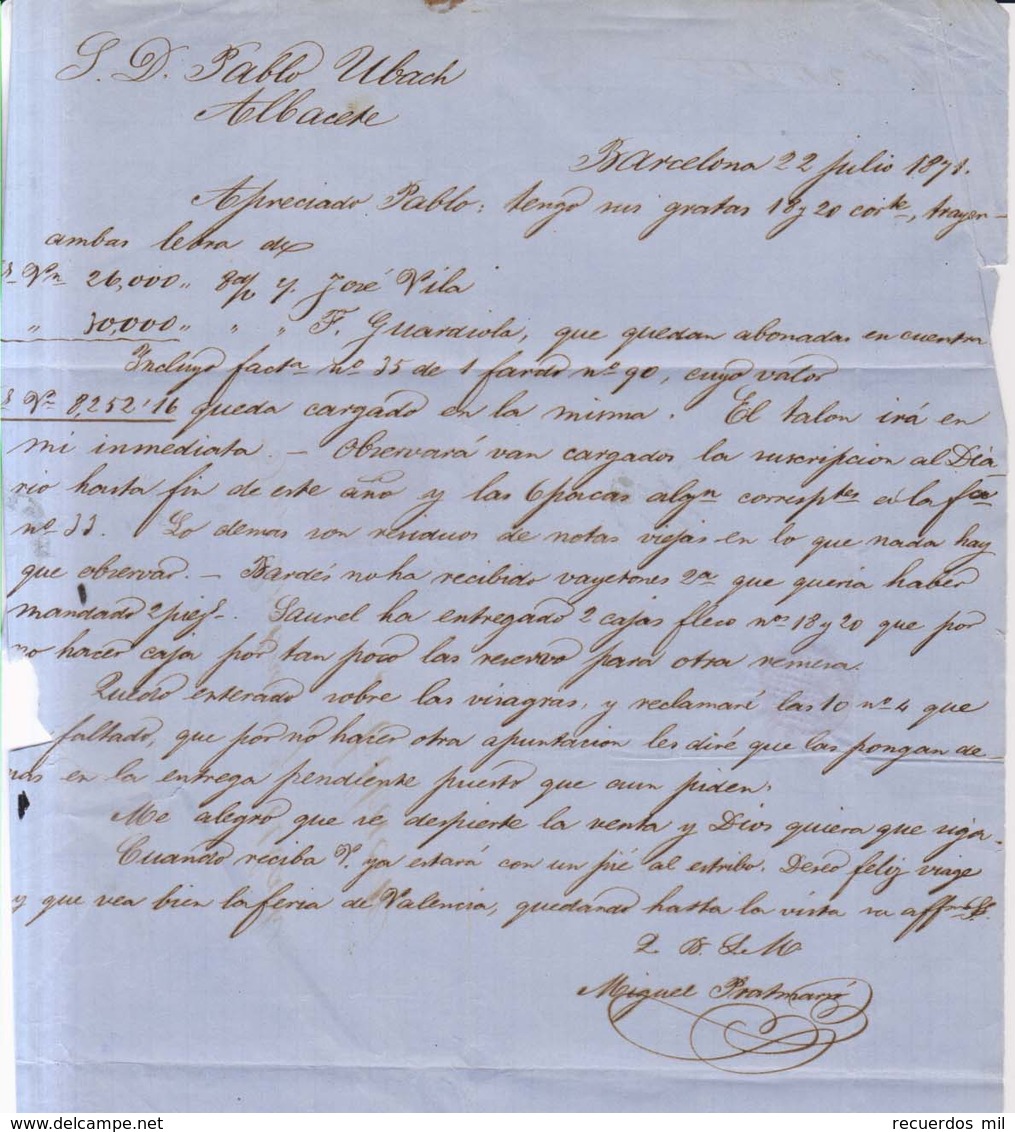 S. D. Pablo Ubach
Albacete
Barcelona 22 julio 1871.
Apreciado Pablo: tengo sus gratas 18 y 20 corte, trayen
ambas letra de
Vn 26,000,, 8 d/v José Vila
,, 30,000,, ,, ,, F. Guardiola, que quedan abonadas en cuenta
Incluyo facta nº 35 de 1 fardo nº 90, cuyo valor
Vn 8,252'16 queda cargado en la misma. El talon irá en
mi inmediata. — Observará van cargados la suscripcion al Dia-
rio hasta fin de este año y las 6 pacas algn correspTes á la fca
nº 33. Lo demas son residuos de notas viejas en lo que nada hay
que observar. — Bardés no ha recibido vayetones 2as que queria haber
mandado 2 piezs. Saurel ha entregado 2 cajas fleco nos 18 y 20 que por
no hacer caja por tan poco las reservo para otra remesa.
Quedo enterado sobre las visagras, y reclamaré las 10 nº 4 que
faltado, que por no hacer otra apuntacion les diré que las pongan de-
mas en la entrega pendiente puesto que aun piden.
Me alegro que se despierte la venta y Dios quiera que siga.
Cuando reciba V. ya estará con un pié al estribo. Deseo feliz viage
y que vea bien la feria de Valencia, quedando hasta la vista su affmo S.S.
Q. B. S. M
Miguel Pratmarsó
recuerdos mil